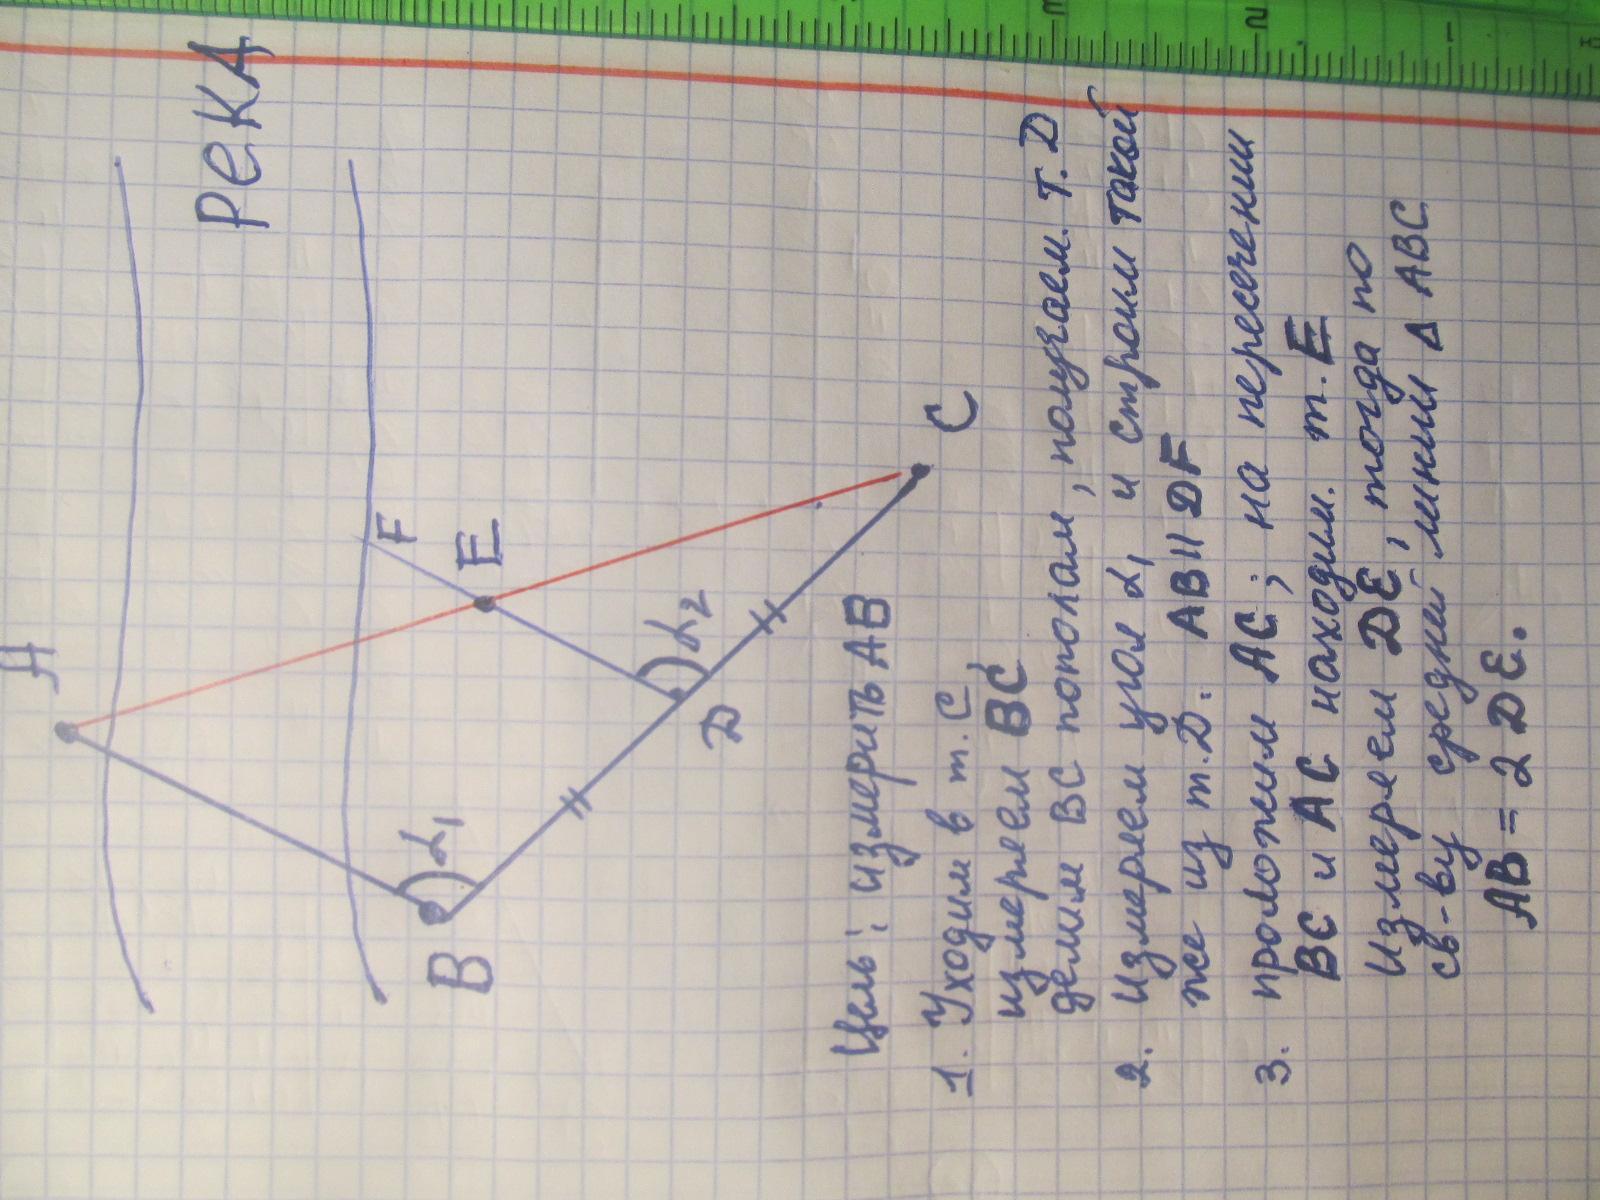 РекА
A
F
E
B
α1
α2
D
C
Цель: измерить AB
1. Уходим в т. C
измеряем BC
делим BC пополам, получаем. т. D
2. Измеряем угол α1 и строим такой
же из т. D. AB || DF
3. проложим AC; на пересечении
BC и AC находим. т. E
Измеряем DE, тогда по
св-ву средней линии Δ ABC
AB = 2 DE.
3
2
1